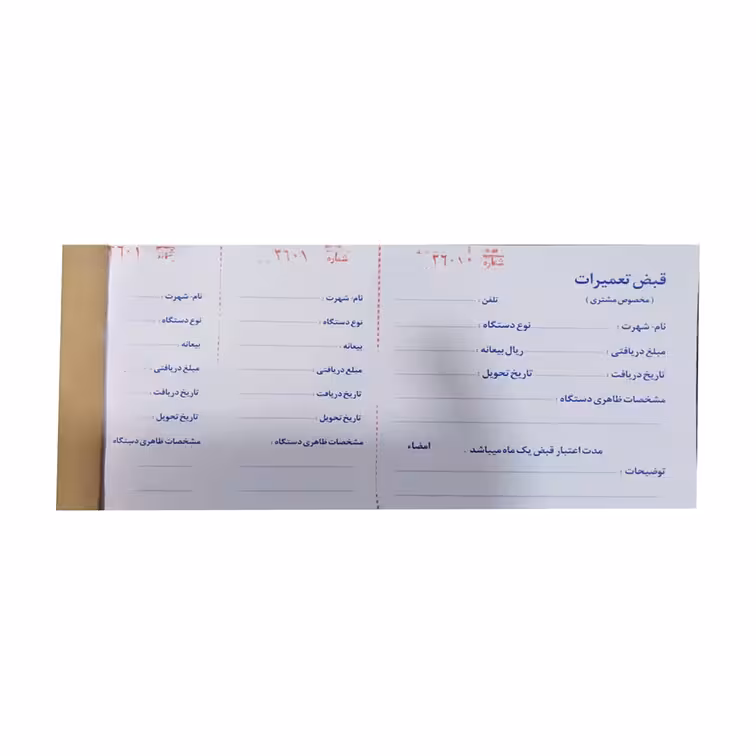 شماره ۳۶۰۱۰
قبض تعمیرات
( مخصوص مشتری ) تلفن :
نام- شهرت : نوع دستگاه :
مبلغ دریافتی : ریال بیعانه :
تاریخ دریافت : تاریخ تحویل :
مشخصات ظاهری دستگاه :
مدت اعتبار قبض یک ماه میباشد . امضاء
توضیحات :
شماره ۳۶۰۱
نام- شهرت :
نوع دستگاه :
بیعانه :
مبلغ دریافتی :
تاریخ دریافت :
تاریخ تحویل :
مشخصات ظاهری دستگاه :
۳۶۰۱
نام- شهرت :
نوع دستگاه :
بیعانه
مبلغ دریافتی :
تاریخ دریافت :
تاریخ تحویل :
مشخصات ظاهری دستگاه